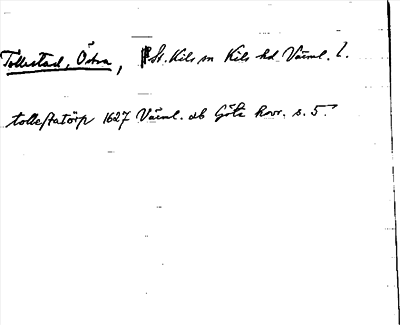 Tollestad, Östra, St. Kils sn Kils hd Värml. l.
tollestatörp 1627 Värml. ab Götz kvr. s. 5.